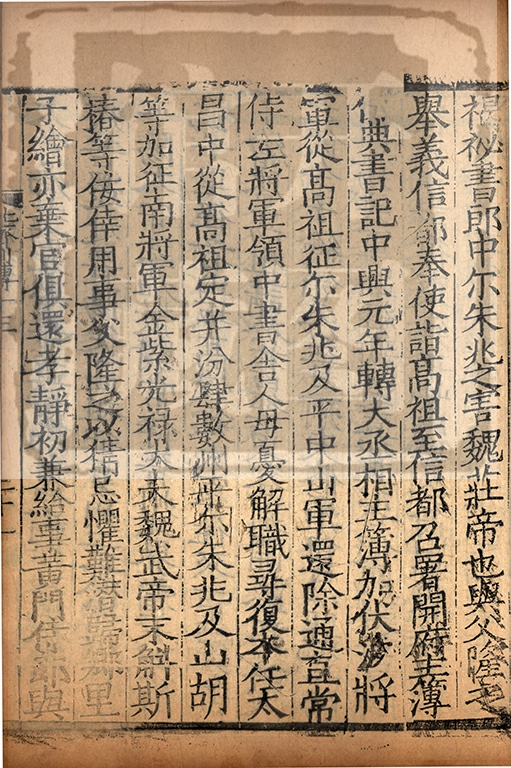 褐秘書郎中尒朱兆之害魏莊帝也與父隆之
舉義信都奉使詣高祖至信都召署開府主簿
仍典書記中興元年轉大丞相主簿加伏波將
軍從高祖征尒朱兆及平中山軍還除通直常
侍左將軍領中書舍人母憂解職尋復本任太
昌中從高祖定并汾肆數州平尒朱兆及山胡
等加征南將軍金紫光禄大夫魏武帝末斛斯
椿等佞倖用事父隆之以猜忌懼難潛歸鄉里
子繪亦棄官俱還孝靜初兼給事黃門侍郎與